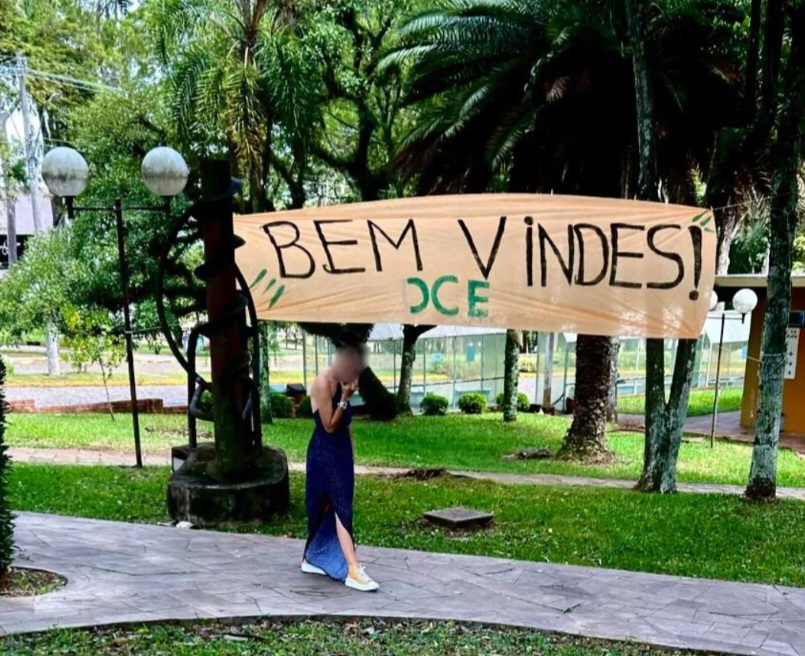 BEM VINDES!
DCE